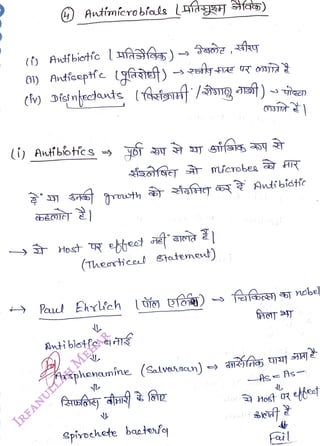 ④ Antimicrobials (प्रतिसूक्ष्म जैविक)
(i) Antibiotic (प्रतिजैविक) → टेबलेट, सीरप
(ii) Antiseptic (पूतिरोधी) → सजीव सतह पर लगाते हैं
(iv) Disinfectants (विसंक्रामी / रोगाणु नाशी) → पोंछा लगाते हैं।
(i) Antibiotics ⇒ पूर्ण रूप से या आंशिक रूप से
संश्लेषित जो microbes को मार
दें या उनकी growth को संदमित कर दें Antibiotic
कहलाते हैं।
→ ये Host पर effect नहीं डालते हैं।
(Theortical statement)
→ Paul Ehrlich (पॉल एर्लिश) → चिकित्सा का nobel
मिला था
⇓
Antibiotic बनाई
⇓
Arsphenamine (Salvarsan) → आर्सेनिक पाया जाता है
-As = As-
⇓
सिफलिस बीमारी के लिए ये Host पर effect
डालती है
⇓
Spirochete bacteria
⇓
Fail
IRFANULLAH MEHAR